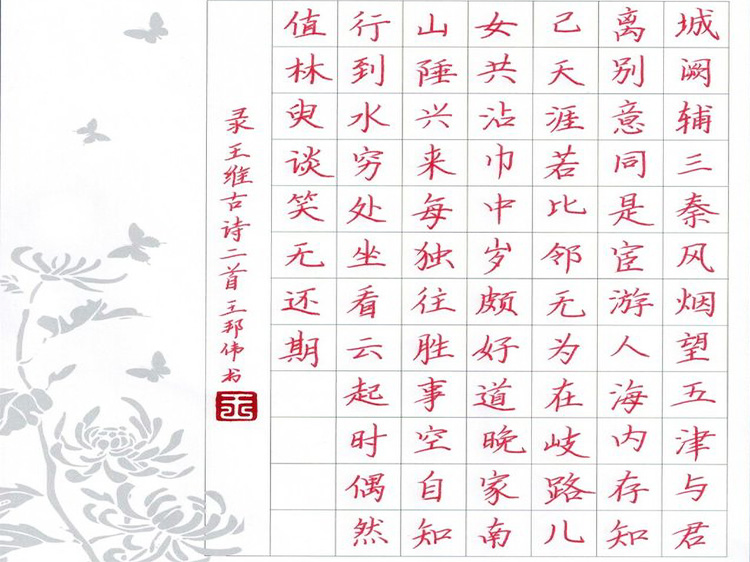 城阙辅三秦风烟望五津与君
离别意同是宦游人海内存知
己天涯若比邻无为在岐路儿
女共沾巾中岁颇好道晚家南
山陲兴来每独往胜事空自知
行到水穷处坐看云起时偶然
值林叟谈笑无还期
录王维古诗二首王邦伟书